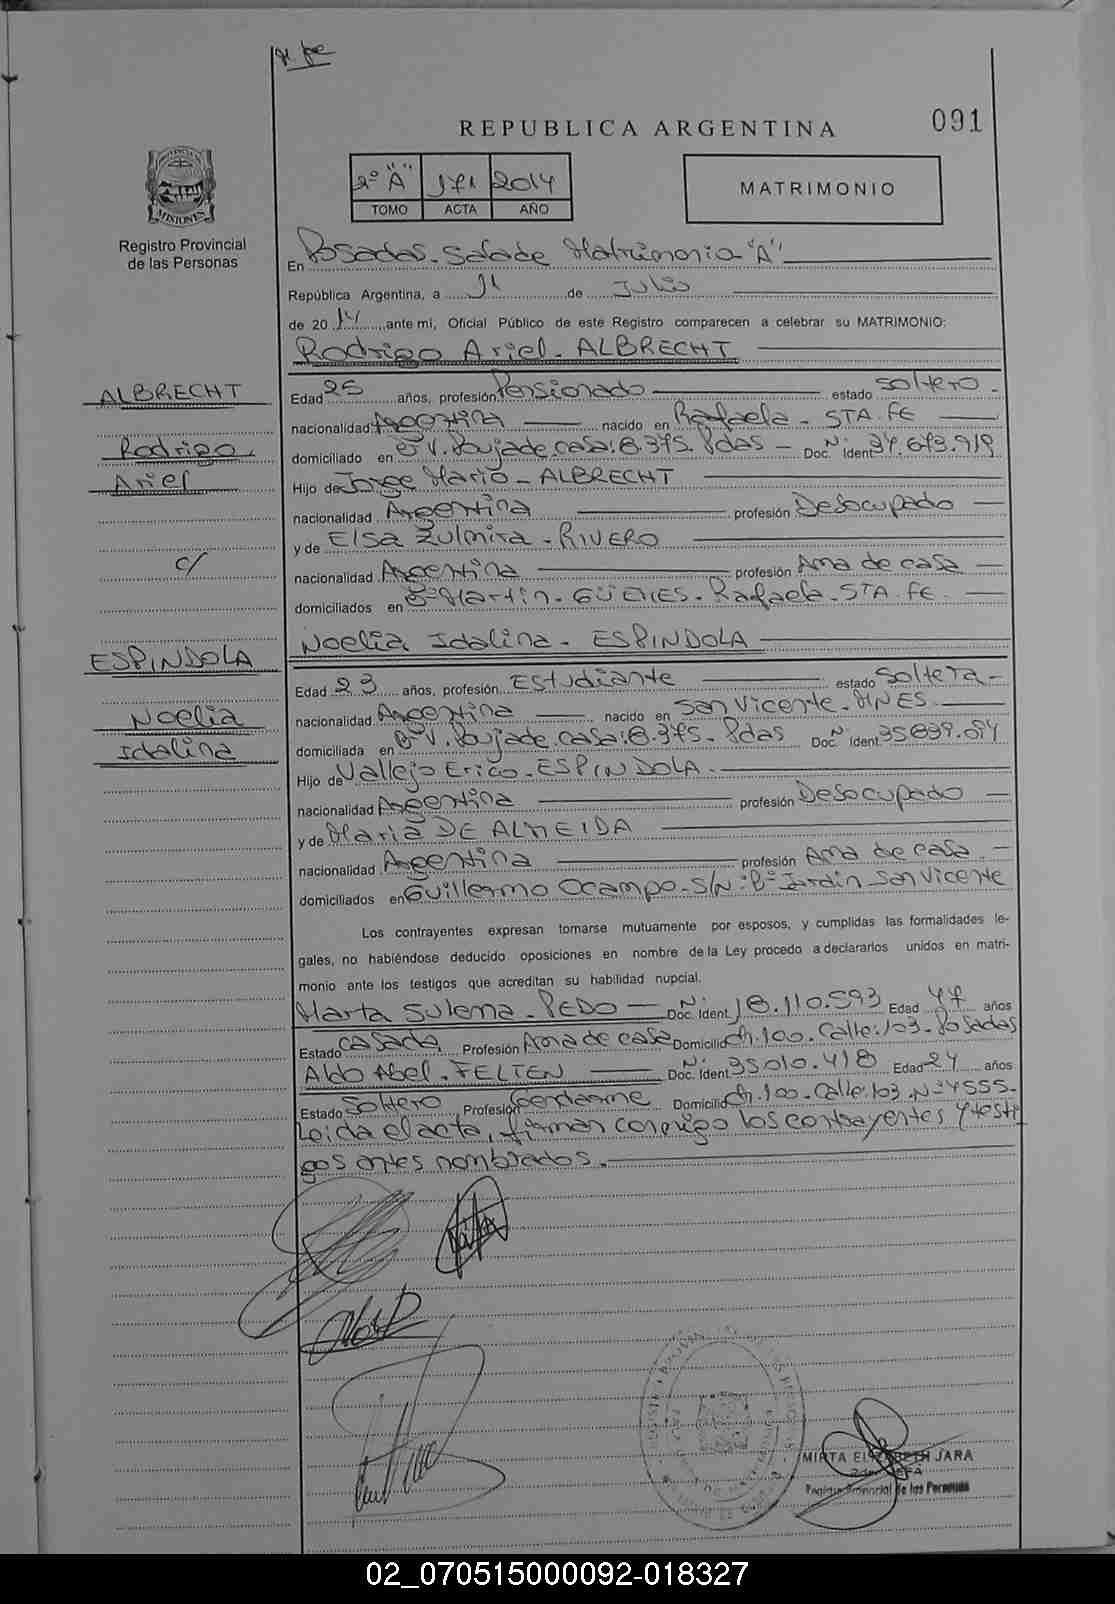 091
REPUBLICA ARGENTINA
2º "A" 171 2014
TOMO ACTA AÑO
MATRIMONIO
MISIONES
Registro Provincial
de las Personas
En Posadas - Sala de Matrimonio "A"
República Argentina, a 11 de Julio
de 2014 ante mi, Oficial Público de este Registro comparecen a celebrar su MATRIMONIO:
Rodrigo Ariel - ALBRECHT
ALBRECHT
Rodrigo
Ariel
c/
ESPINDOLA
Noelia
Idalina
Edad 25 años, profesión Pensionado estado Soltero -
nacionalidad Argentina nacido en Rafaela - STA. FE
domiciliado en Bº V. Poujade casa: 8.375. Pdas - Doc. Nº Ident 37.673.919
Hijo de Jorge Mario - ALBRECHT
nacionalidad Argentina profesión Desocupado
y de Elsa Zulmira - RIVERO
nacionalidad Argentina profesión Ama de casa
domiciliados en Bº Martin - GÜEMES - Rafaela - STA. FE.
Noelia Idalina - ESPINDOLA
Edad 23 años, profesión Estudiante estado Soltera -
nacionalidad Argentina nacido en San Vicente - MNES.
domiciliada en Bº V. Poujade casa: 8.375 - Pdas Doc. Nº Ident 35.839.
Hijo de Vallejo Erico - ESPINDOLA -
nacionalidad Argentina profesión Desocupado
y de Maria DE ALMEIDA
nacionalidad Argentina profesión Ama de casa -
domiciliados en Guillermo Ocampo - S/N: Bº Jardin San Vicente
Los contrayentes expresan tomarse mutuamente por esposos, y cumplidas las formalidades le-
gales, no habiéndose deducido oposiciones en nombre de la Ley procedo a declararlos unidos en matri-
monio ante los testigos que acreditan su habilidad nupcial.
Marta Sulema - PEDO Doc. Nº Ident 18.110.593 Edad 47 años
Estado Casada Profesión Ama de casa Domicilio Ch. 100 - Calle: 103 - Posadas
Aldo Abel - FELTEN Doc. Nº Ident 35.010.418 Edad 24 años
Estado Soltero Profesión Gendarme Domicilio Ch. 100 - Calle: 103 - Nº 4555 -
Leida el acta, firman conmigo los contrayentes y testi
gos antes nombrados. -
MIRTA ELIZABETH JARA
Registro Provincial de las Personas
02_070515000092-018327